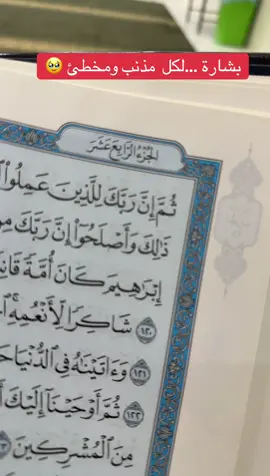 بشارة ...لكل مذنب ومخطئ 🥹
الجزء الرابع عشر
ثُمَّ إِنَّ رَبَّكَ لِلَّذِينَ عَمِلُوا
ذَٰلِكَ وَأَصْلَحُوا إِنَّ رَبَّكَ مِن
إِبْرَاهِيمَ كَانَ أُمَّةً قَانِ
شَاكِرًا لِّأَنْعُمِهِ ١٢٠
١٢١ وَءَاتَيْنَاهُ فِي الدُّنْيَا حَ
١٢٢ ثُمَّ أَوْحَيْنَا إِلَيْكَ أَ
مِنَ الْمُشْرِكِينَ